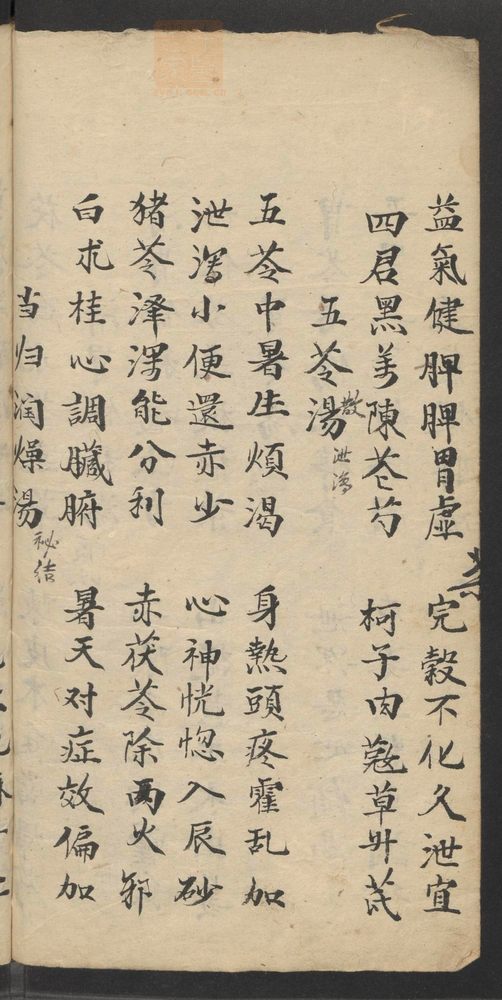 益氣健脾脾胃虛 完穀不化久泄宜
四君黑姜陳苍芍 柯子肉蔻草升芪
五苓湯散 泄瀉
五苓中暑生煩渴 身熱頭疼霍乱加
泄瀉小便還赤少 心神恍惚入辰砂
猪苓泽泻能分利 赤茯苓除两火邪
白朮桂心調臟腑 暑天对症效偏加
当归润燥湯 秘结